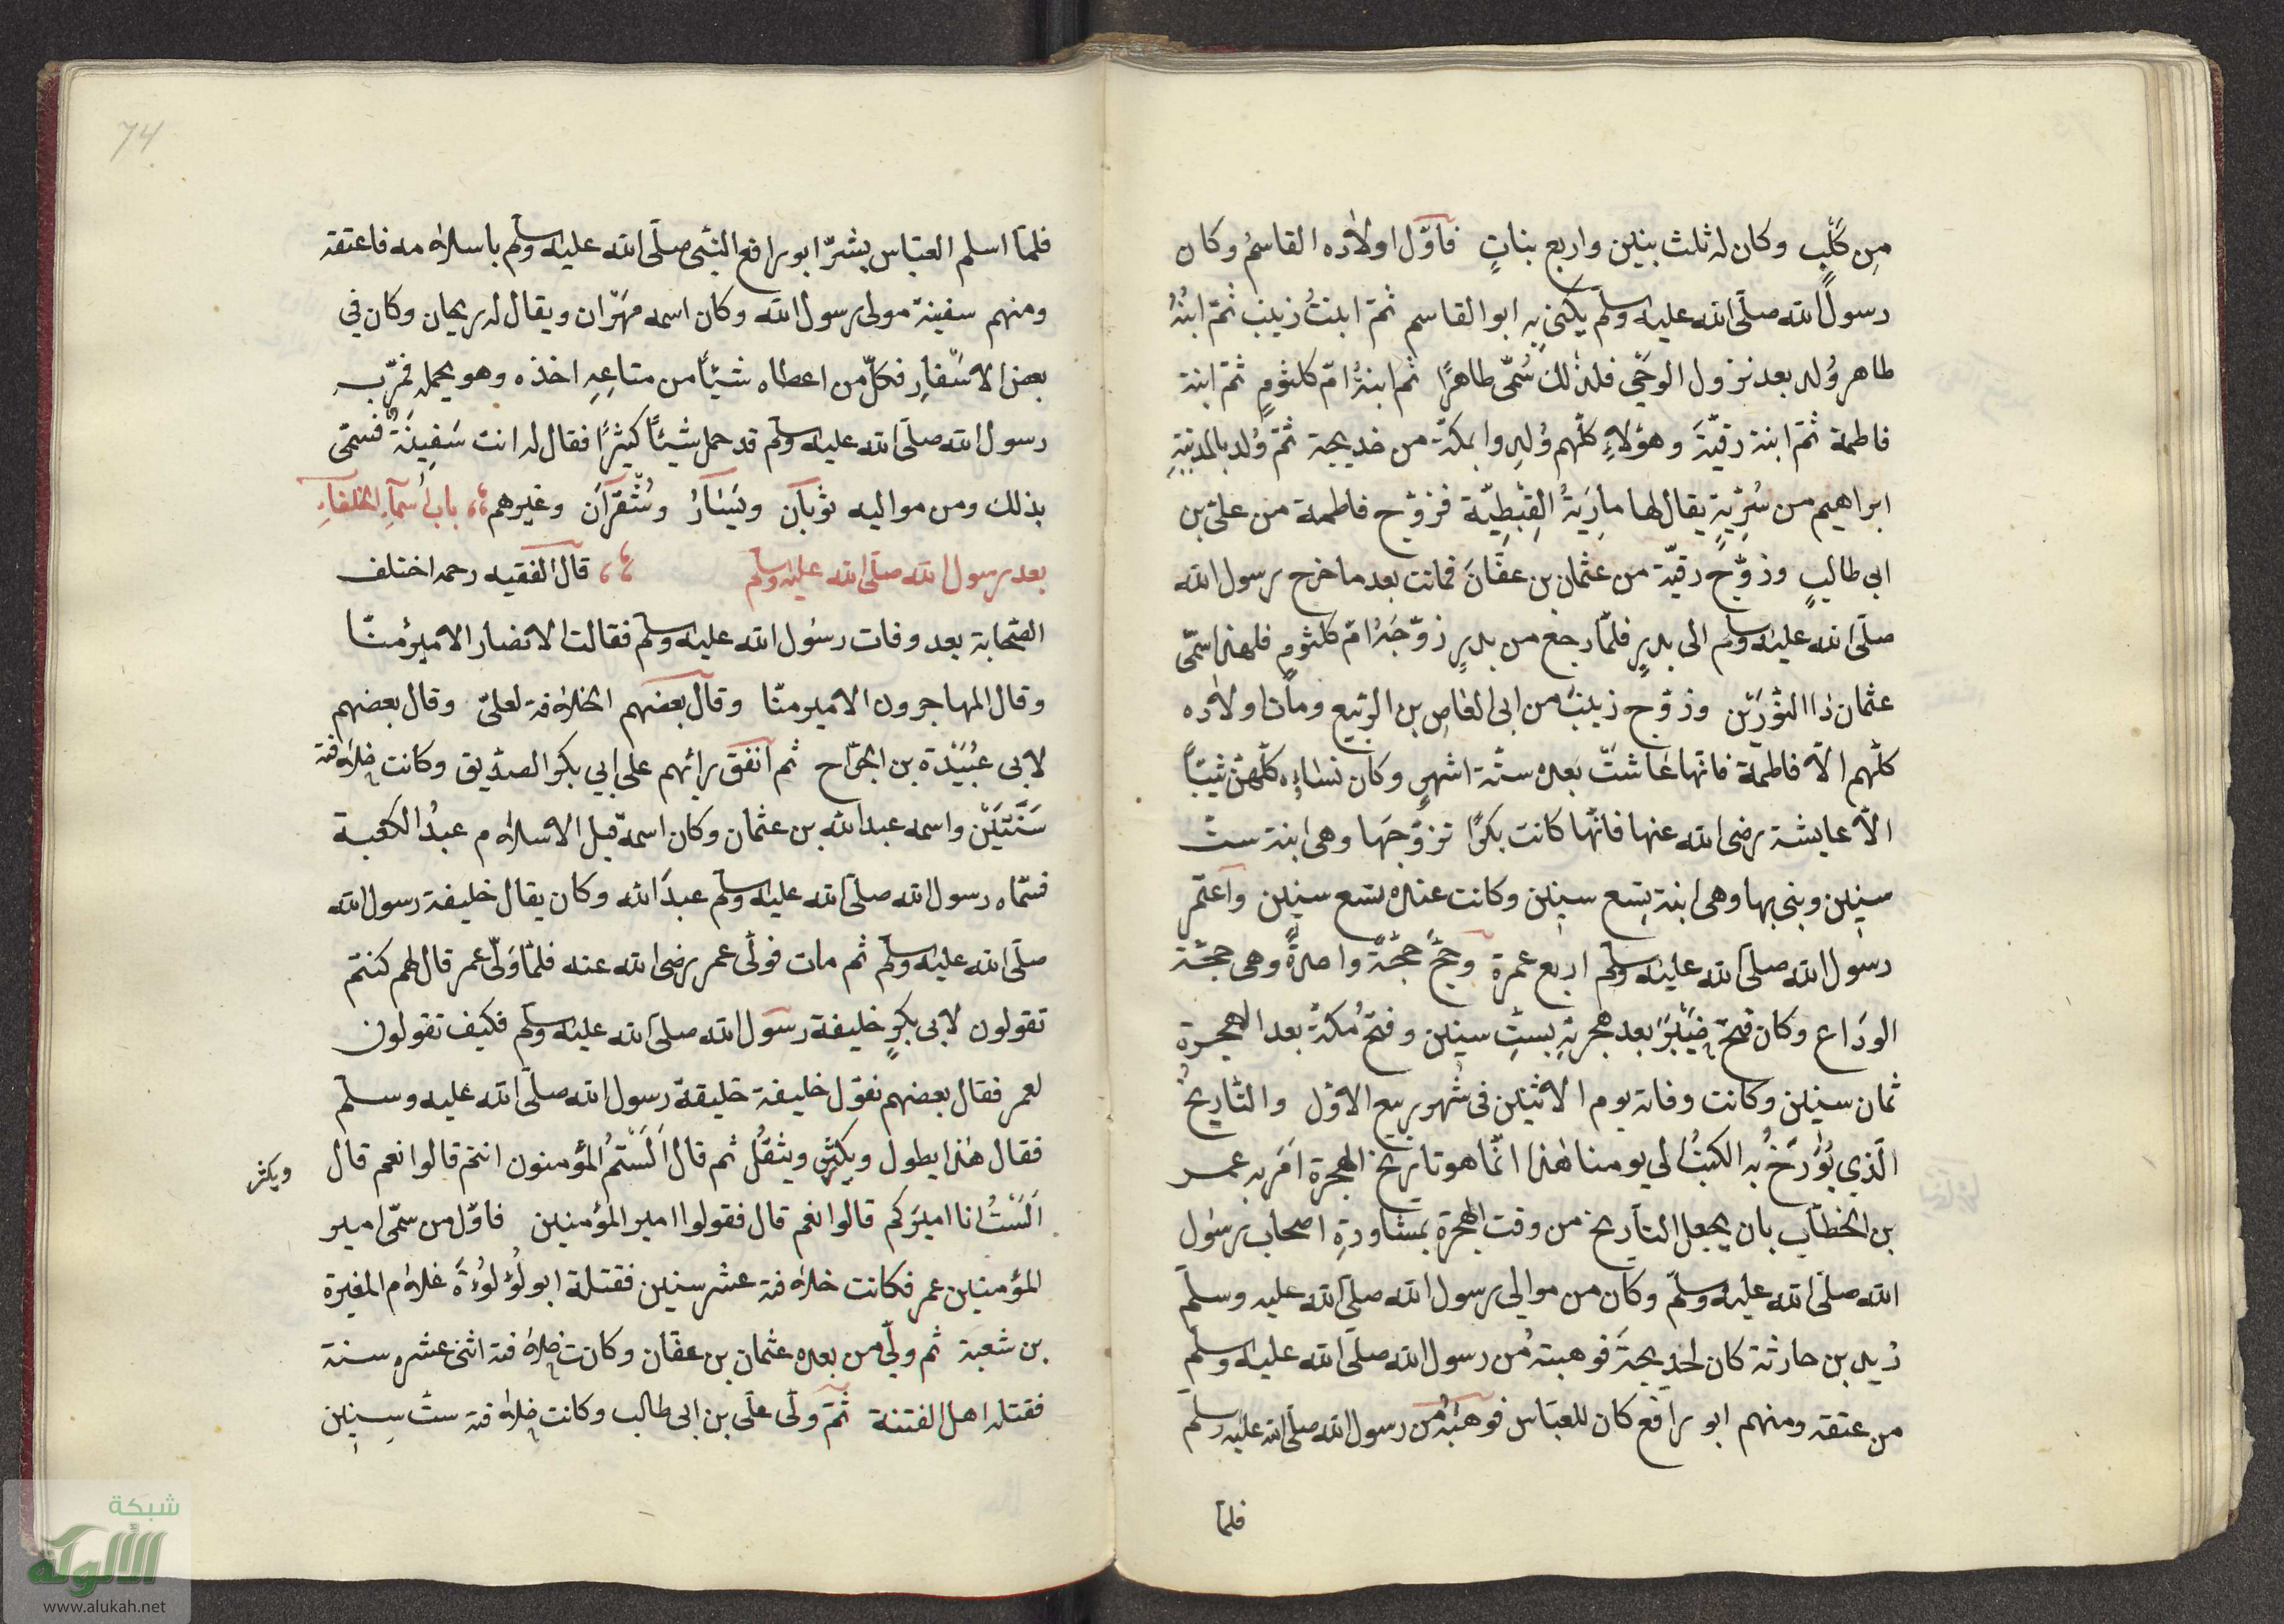 من كلبٍ وكان له ثلث بنين واربع بناتٍ فاوّل اولاده القاسمُ وكان
رسول الله صلّى الله عليه وسلّم يكنى به ابو القاسم ثمّ ابنتُ زينب ثمّ ابنُهُ
طاهر وُلد بعد نزول الوحي فلذلك سُمّى طاهرًا ثم ابنةُ امّ كلثومٍ ثمّ ابنة
فاطمة ثمّ ابنة رقيّة وهؤلاءِ كلّهم وُلدوا بمكّة من خديجة ثمّ وُلد بالمدينةِ
ابراهيم من سُرّيّةٍ يقال لها مارِيَةُ القِبْطِيّة فزوّج فاطمة من علىّ بن
ابى طالبٍ وزوّج رقيّة من عثمان بن عفّانَ فماتت بعد ما خرج رسول الله
صلّى الله عليه وسلم الى بدرٍ فلمّا رجع من بدرٍ زوّجَهُ امّ كلثومٍ فلهذا سمّى
عثمان ذا النّورَيْن وزوّج زينب من ابى العاصِ بن الرّبيع ومات اولاده
كلّهم الّا فاطمة فانّها عاشت بعده ستّة اشهرٍ وكان نساؤه كلّهنّ ثيّبًا
الّا عايشة رضى الله عنها فانّها كانت بكرًا تزوّجَها وهى ابنة ستّ
سنين وبنى بها وهى ابنة تِسع سنين وكانت عنده تسع سنين واعتمر
رسول الله صلى الله عليه وسلم اربع عمرة وحجّ حجّةً واحدةً وهى حجّة
الودَاع وكان فتحُ خَيْبَرَ بعد هجرتِهِ بستِّ سنين وفتحُ مكّةَ بعد الهجرة
ثمان سنين وكانت وفاته يوم الاثنين فى شهر ربيع الاوّل والتّاريخُ
الّذي يُؤَرَّخُ به الكتبُ الي يومنا هٰذا انّما هو تاريخ الهجرة اَمَر به عمر
بن الخطّاب بان يجعل التأريخ من وقت الهجرة بمشاورةِ اصحاب رسول
الله صلّى الله عليه وسلّم وكان من موالى رسول الله صلىّ الله عليه وسلم
زيد بن حارثة كان لخديجةَ فوهبته من رسول الله صلّى الله عليه وسلّم
من عتقه ومنهم ابو رافع كان للعبّاس فوهبَهُ من رسول الله صلّى الله عليه وسلّم
فلمّا
74
فلمّا اسلم العبّاس بشّر ابو رافع النّبّى صلّى الله عليه وسلّم باسلامه فاعتقه
ومنهم سفينة مولى رسول الله وكان اسمه مهَرّان ويقال له ريحان وكان في
بعض الاسْفارِ فكلّ من اعطاه شيئًا من متاعِهِ اخذه وهو يحمله فمرّ به
رسول الله صلّى الله عليه وسلم قد حمل شيئًا كثيرًا فقال له انت سَفِينَةٌ فسمّى
بذلك ومن مواليه ثوبان ويَسَارُ وشُقْرَان وغيرهم باب اسمآءِ الخلفآءِ
بعد رسول الله صلّى الله عليه وسلم قال الفقيه رحمه اختلف
الصّحابة بعد وفات رسُول الله عليه وسلم فقالت الانصار الامير منّا
وقال المهاجرون الامير منّا وقال بعضهم الخلافة لعلىّ وقال بعضهم
لابى عُبَيْدة بن الجرّاح ثم اتفق رائهم على ابي بكر الصدّيق وكانت خلافة
سَنَتَيْن واسمه عبد الله بن عثمان وكان اسمه قبل الاسلام عبدُ الكعبة
فسمّاه رسول الله صلىّ الله عليه وسلم عبدَ الله وكان يقال خليفة رسول الله
صلّى الله عليه وسلّم ثم مات فولّى عمر رضى الله عنه فلمّا وَلّى عمر قال لهم كنتم
تقولون لابى بكرٍ خليفة رسول الله صلىّ الله عليه وسلم فكيف تقولون
لعمر فقال بعضهم نقول خليفة خليفة رسول الله صلّى الله عليه وسلم
فقال هٰذا يطول ويكثر ويثقُل ثم قال اَلَسْتمُ المؤمنون انتم قالوا نعم قال
ويكثر
اَلَسْتُ انا اميرَكم قالوا نعم قال فقولوا امير المؤمنين فاوّل من سمّى امير
المؤمنين عمر فكانت خلافته عشر سنين فقتلة ابو لُؤلُؤَةَ غلام المغيرة
بن شعبة ثم ولّي من بعده عثمان بن عفّان وكانت خلافته اثنى عشره سنة
فقتله اهل الفتنة ثمّ ولّى علىّ بن ابى طالب وكانت خلافته ستّ سنين
شبكة
الألوكة
www.alukah.net